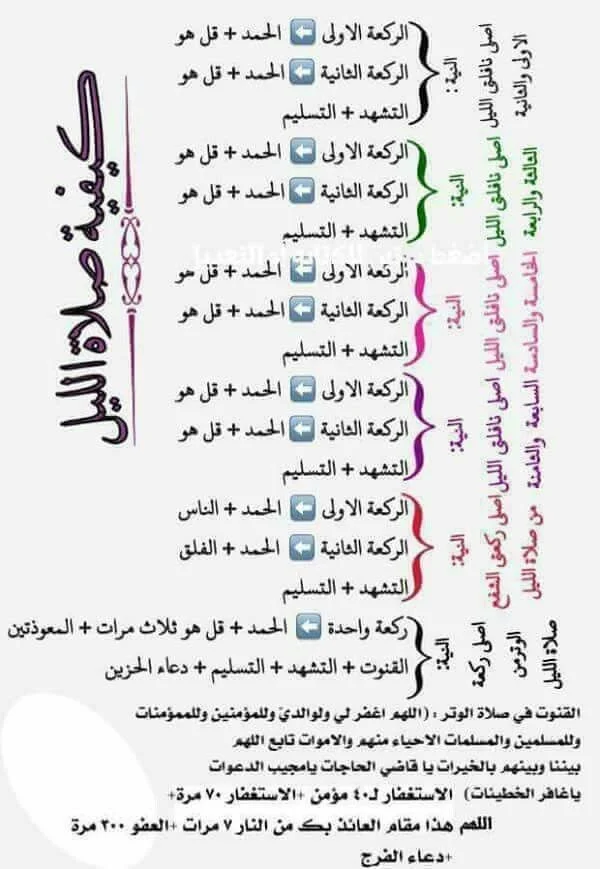 كيفية صلاة الليل
الاولى والثانية
اصلي نافلتي الليل
النية:
الركعة الاولى ⬅ الحمد + قل هو
الركعة الثانية ⬅ الحمد + قل هو
التشهد + التسليم
الثالثة والرابعة
اصلي نافلتي الليل
النية:
الركعة الاولى ⬅ الحمد + قل هو
الركعة الثانية ⬅ الحمد + قل هو
التشهد + التسليم
الخامسة والسادسة
اصلي نافلتي الليل
النية:
الركعة الاولى ⬅ الحمد + قل هو
الركعة الثانية ⬅ الحمد + قل هو
التشهد + التسليم
السابعة والثامنة
اصلي نافلتي الليل
النية:
الركعة الاولى ⬅ الحمد + قل هو
الركعة الثانية ⬅ الحمد + قل هو
التشهد + التسليم
من صلاة الليل
اصلي ركعتي الشفع
النية:
الركعة الاولى ⬅ الحمد + الناس
الركعة الثانية ⬅ الحمد + الفلق
التشهد + التسليم
صلاة الليل
الوتر من
اصلي ركعة
النية:
ركعة واحدة ⬅ الحمد + قل هو ثلاث مرات + المعوذتين
القنوت + التشهد + التسليم + دعاء الحزين
القنوت في صلاة الوتر : (اللهم اغفر لي ولوالديّ وللمؤمنين وللمؤمنات
وللمسلمين والمسلمات الاحياء منهم والاموات تابع اللهم
بيننا وبينهم بالخيرات يا قاضي الحاجات يامجيب الدعوات
ياغافر الخطيئات) الاستغفار لـ٤٠ مؤمن +الاستغفار ٧٠ مرة+
اللهم هذا مقام العائذ بك من النار ٧ مرات +العفو ٣٠٠ مرة
+دعاء الفرج